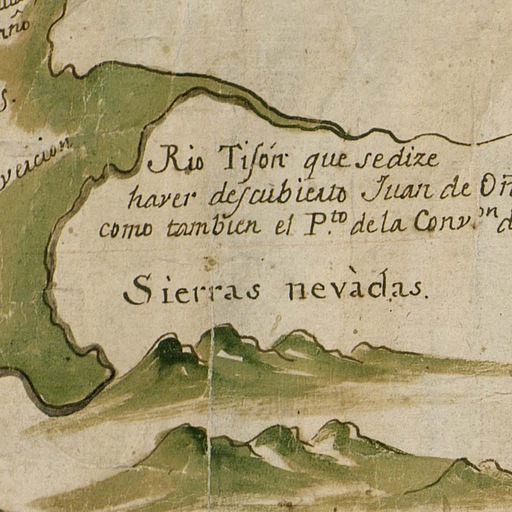 año
s.
Rio Tisón que se dize
haver descubierto Juan de Oñ
como también el P.to de la Conv.on d
Sierras nevàdas.